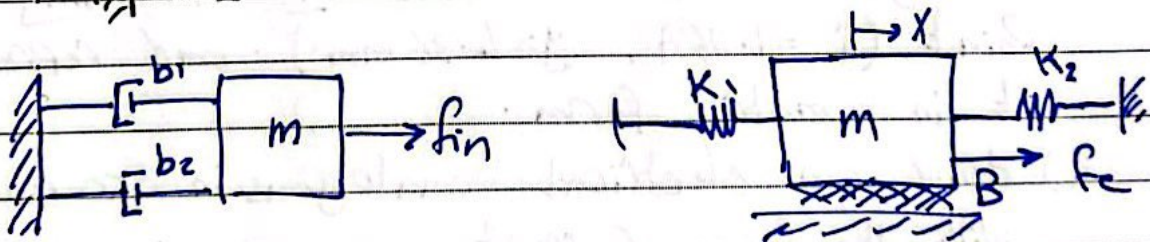 b1
m
fin
b2
X
K1
m
K2
B
fc